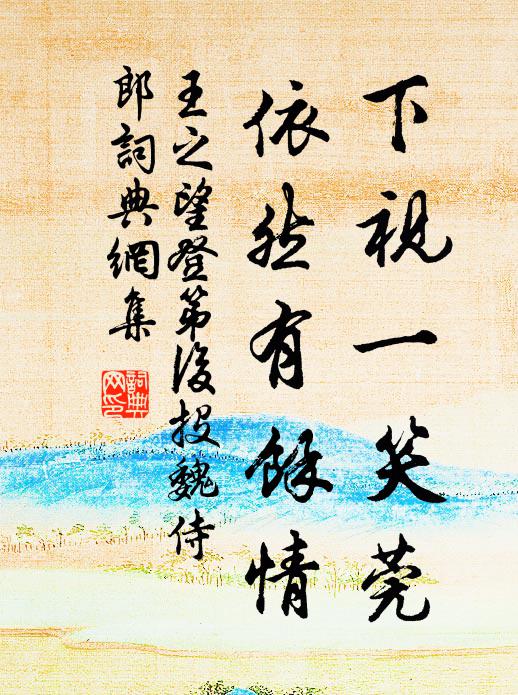 下視一笑莞
依然有餘情
王之望登第後投魏侍
郎詞典網集
詞典
网印